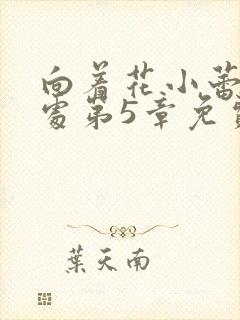 向着花小蕾
处第5章免费
葉天南